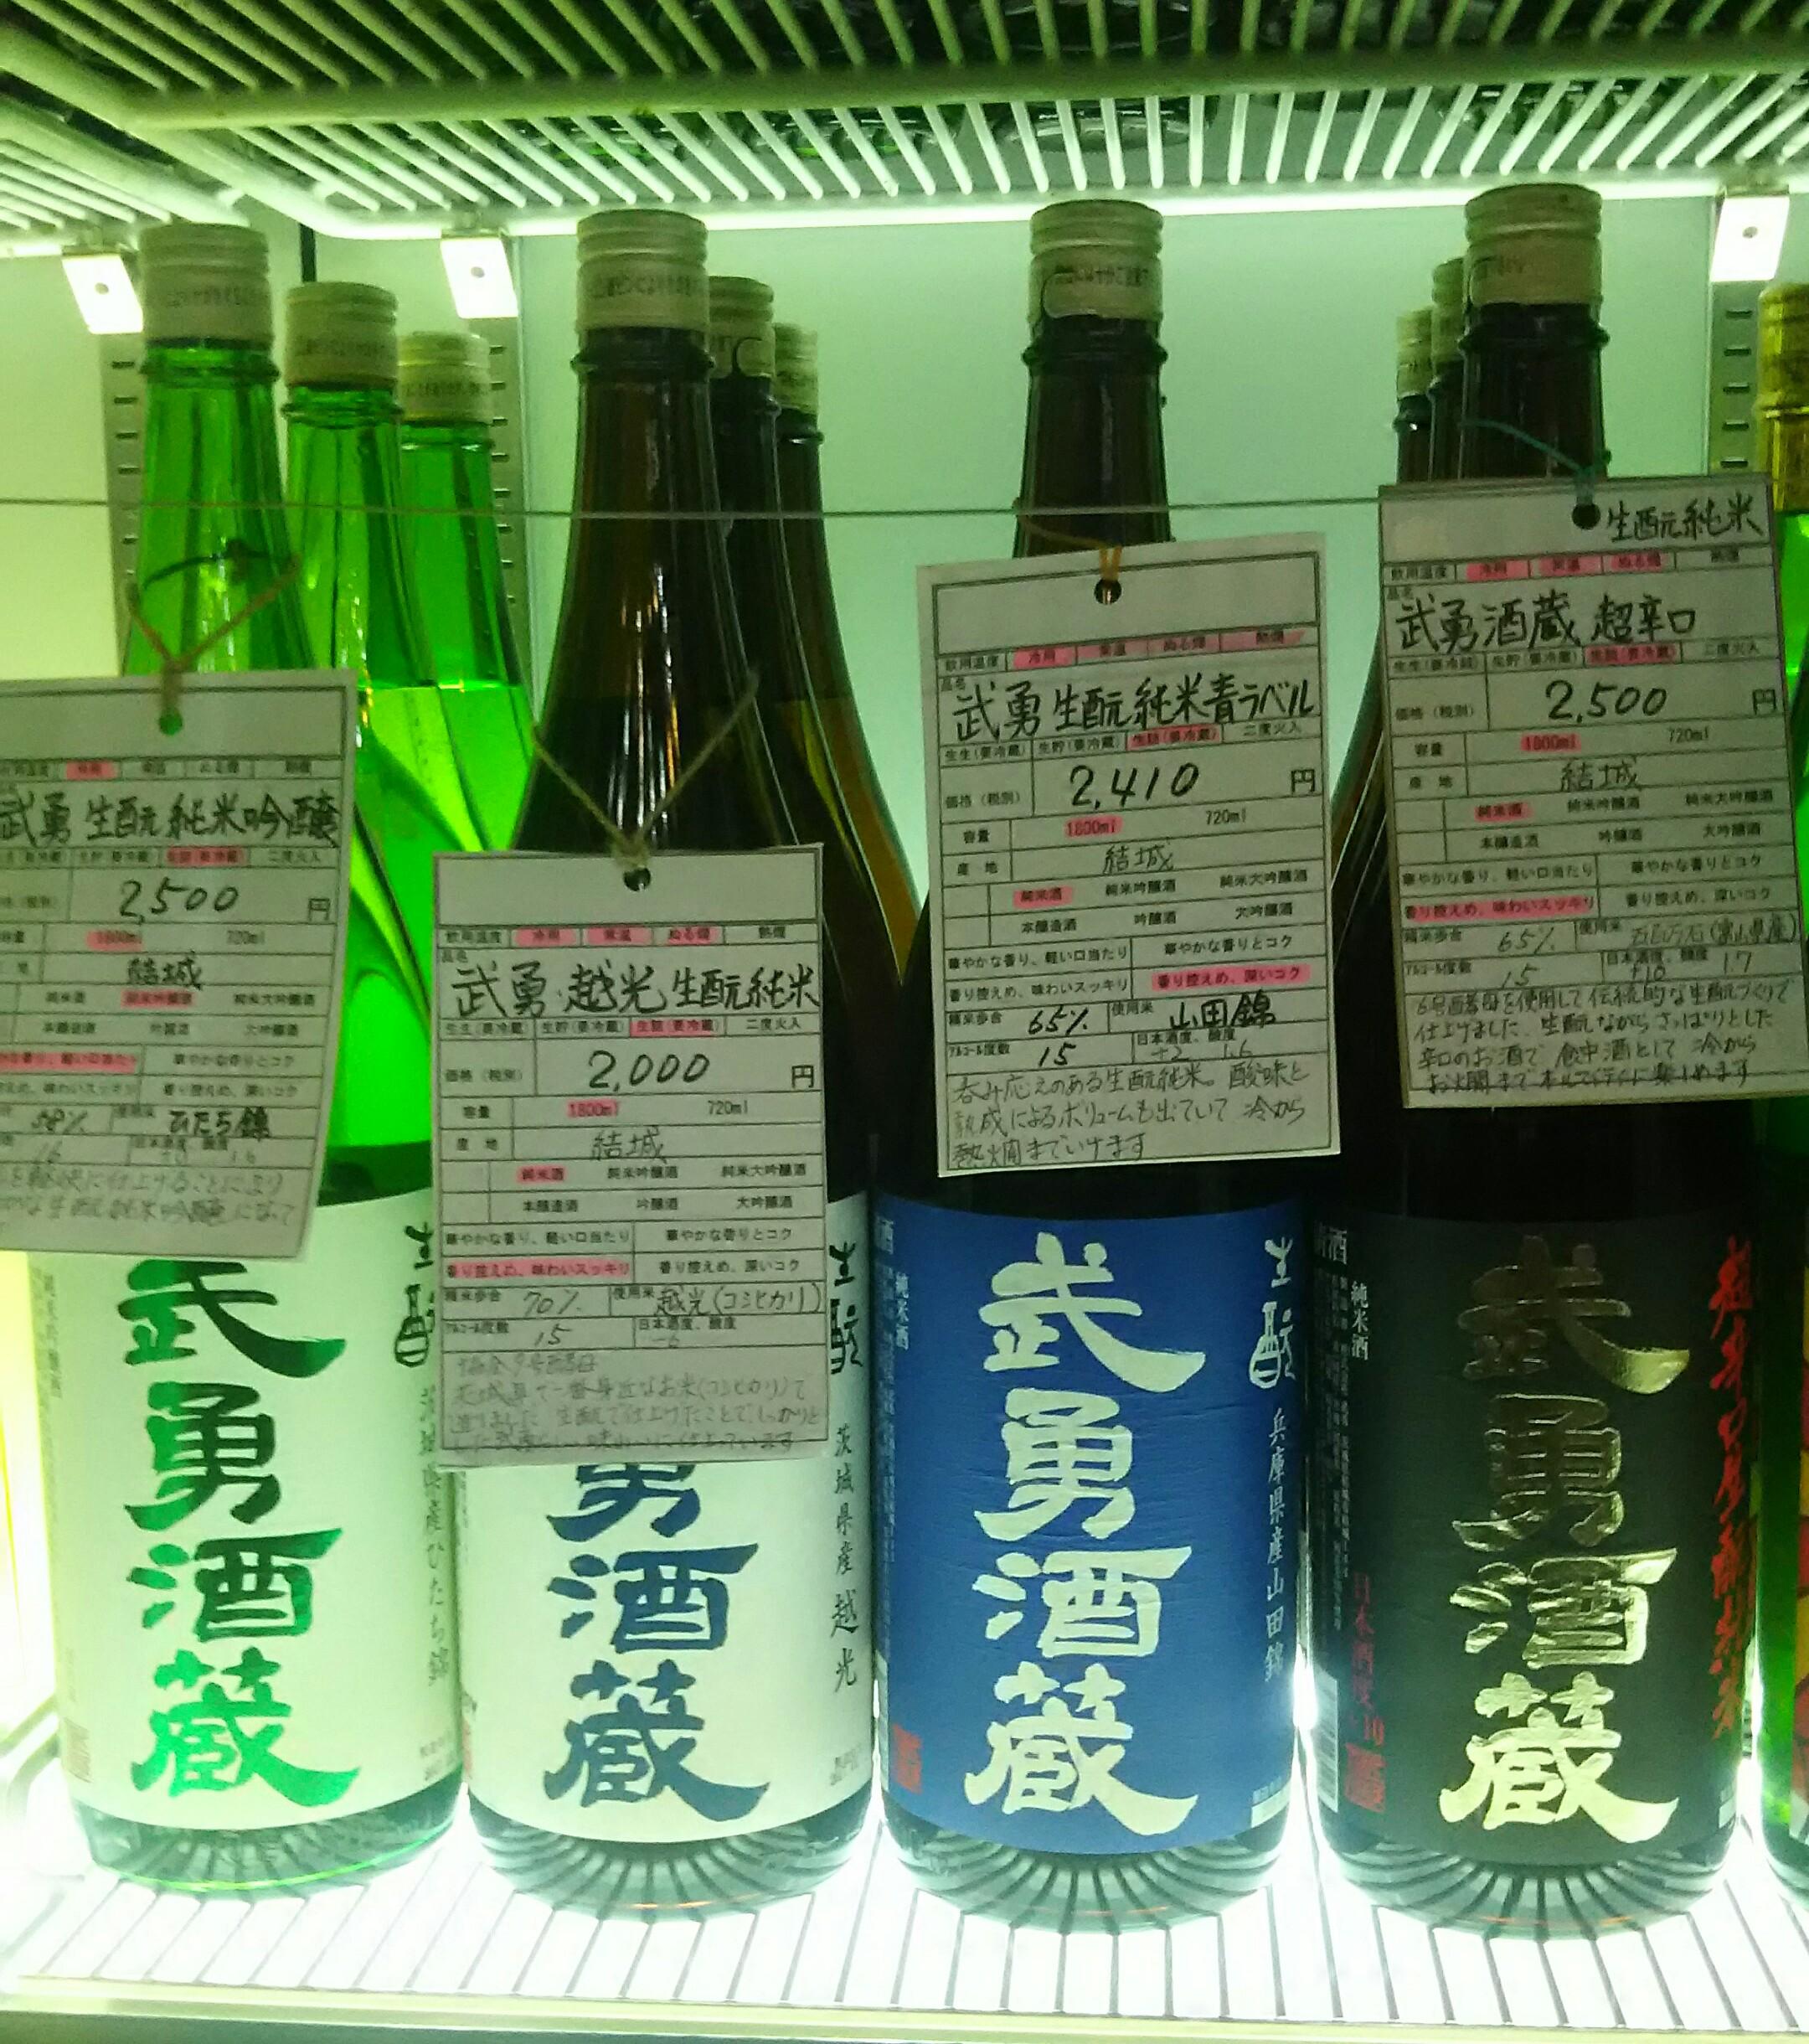 武勇 生酛純米吟醸
2,500 円
1800ml 720ml
結城
純米酒 純米吟醸酒 純米大吟醸酒
本醸造酒 吟醸酒 大吟醸酒
華やかな香りとコク
香り控えめ、深いコク
58% ひたち錦
16
武勇酒蔵
生酛
茨城県産ひたち錦
飲用温度 冷用 常温 ぬる燗 熱燗
品名
武勇 越光 生酛純米
生生(要冷蔵) 生貯(要冷蔵) 生詰(要冷蔵) 二度火入
価格(税別) 2,000 円
容量 1800ml 720ml
産地 結城
純米酒 純米吟醸酒 純米大吟醸酒
本醸造酒 吟醸酒 大吟醸酒
華やかな香り、軽い口当たり 華やかな香りとコク
香り控えめ、味わいスッキリ 香り控えめ、深いコク
精米歩合 70% 使用米 越光(コシヒカリ)
アルコール度数 15 日本酒度、酸度 -6
協会9号酵母
茨城県で一番身近なお米(コシヒカリ)で
造りました 生酛で仕上げたことでしっかりと
勇酒蔵
生酛
茨城県産 越光
飲用温度 冷用 常温 ぬる燗 熱燗
品名
武勇 生酛純米青ラベル
生生(要冷蔵) 生貯(要冷蔵) 生詰(要冷蔵) 二度火入
価格(税別) 2,410 円
容量 1800ml 720ml
産地 結城
純米酒 純米吟醸酒 純米大吟醸酒
本醸造酒 吟醸酒 大吟醸酒
華やかな香り、軽い口当たり 華やかな香りとコク
香り控えめ、味わいスッキリ 香り控えめ、深いコク
精米歩合 65% 使用米 山田錦
アルコール度数 15 日本酒度、酸度 +2 1.6
呑み応えのある生酛純米。酸味と
熟成によるボリュームも出ていて 冷から
熱燗までいけます
純米酒
武勇酒蔵
生酛
兵庫県産山田錦
生酛純米
飲用温度 冷用 常温 ぬる燗 熱燗
品名
武勇酒蔵 超辛口
生生(要冷蔵) 生貯(要冷蔵) 生詰(要冷蔵) 二度火入
価格(税別) 2,500 円
容量 1800ml 720ml
産地 結城
純米酒 純米吟醸酒 純米大吟醸酒
本醸造酒 吟醸酒 大吟醸酒
華やかな香り、軽い口当たり 華やかな香りとコク
香り控えめ、味わいスッキリ 香り控えめ、深いコク
精米歩合 65% 使用米 五百万石(富山県産)
アルコール度数 15 日本酒度、酸度 +10 1.7
6号酵母を使用して伝統的な生酛づくりで
仕上げました。生酛ながらさっぱりとした
辛口のお酒で 食中酒として 冷から
お燗までオールマイティに楽しめます
純米酒
日本酒度+10
武勇酒蔵